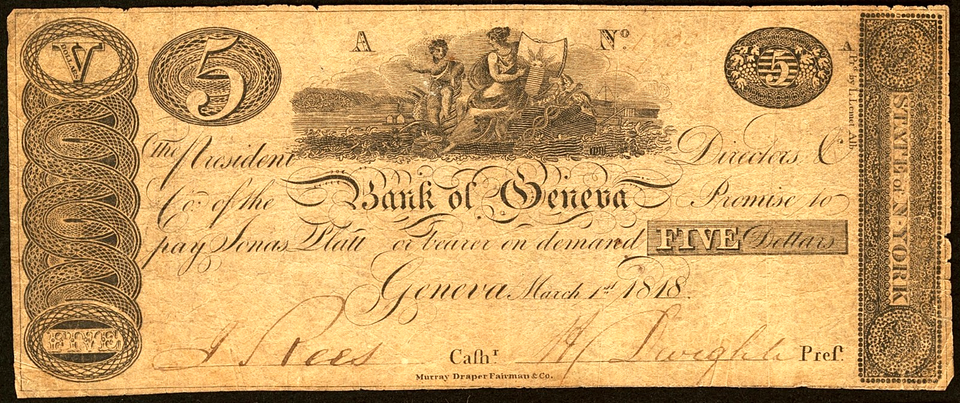 V
5
A
Nº
5
STATE of N. YORK
The President Directors &
Co: of the Bank of Geneva Promise to
pay Jonas Platt or bearer on demand FIVE Dollars
Geneva March 1st 1818.
J Rees Cashr H Dwight Prest
FIVE
Murray Draper Fairman & Co.